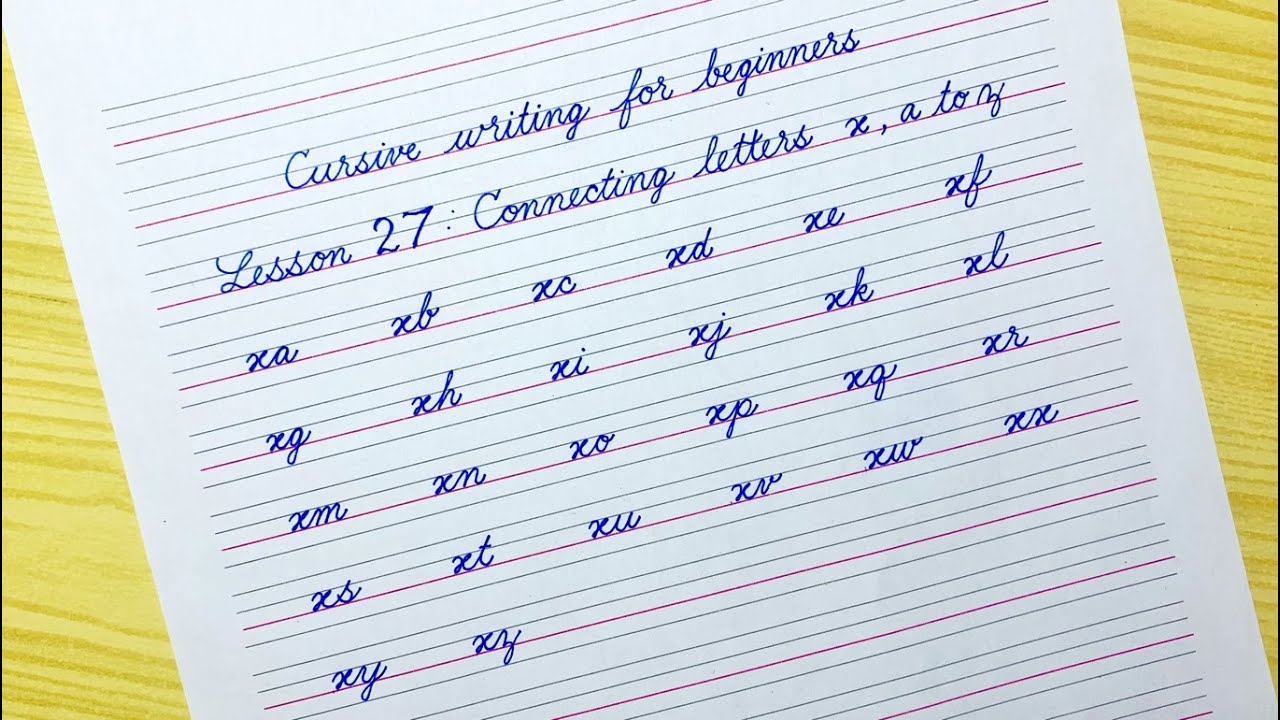 Cursive writing for beginners
Lesson 27: Connecting letters x, a to z
xa xb xc xd xe xf
xg xh xi xj xk xl
xm xn xo xp xq xr
xs xt xu xv xw xx
xy xz